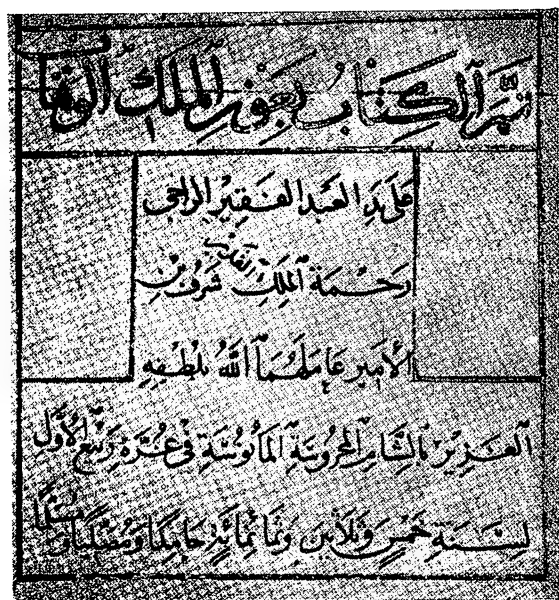 تم الكتاب بعون الملك الوهاب
على يد العبد الفقير الراجي
رحمة الملك القدير شرف بن
الأمير عاملهما الله بلطفه
العزيز بالشام المحروسة المأنوسة في غرة ربيع الأول
لسنة خمس وثلاثين وثمانمائة حامدا ومصليا ومسلما